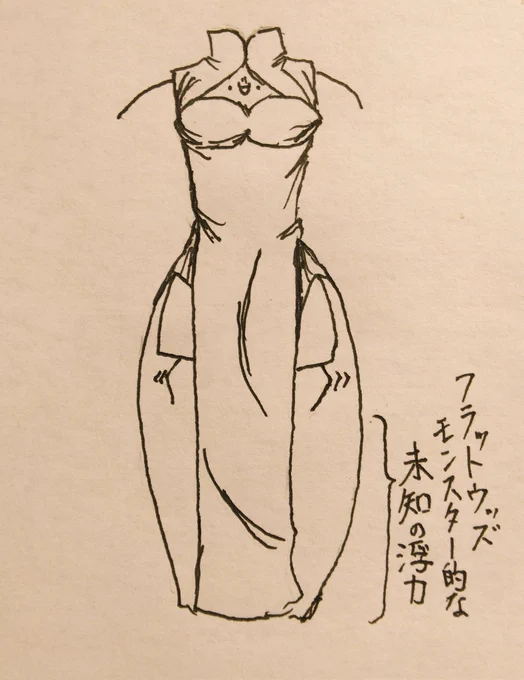 フラットウッズ
モンスター的な
未知の浮力